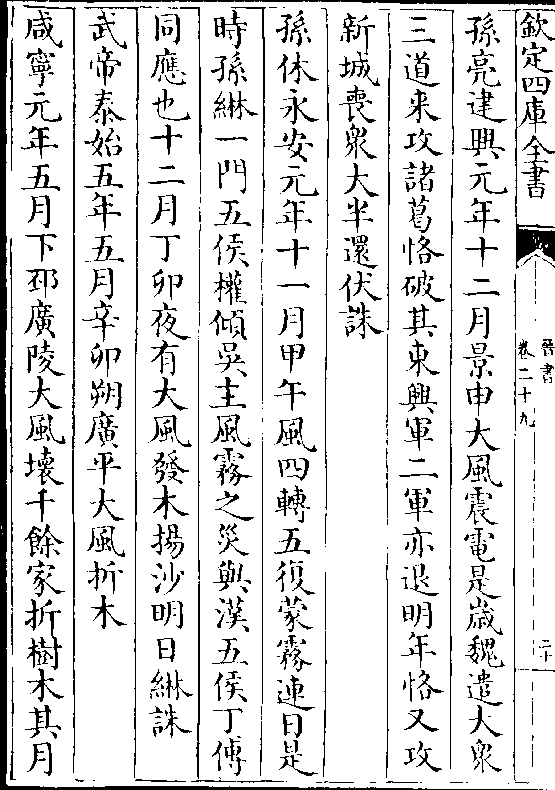 欽定四庫全書
晉書
卷二十九
二十
孫亮建興元年十二月景申大風震電是歲魏遣大衆
三道来攻諸葛恪破其東興軍二軍亦退明年恪又攻
新城喪衆大半還伏誅
孫休永安元年十一月甲午風四轉五復蒙霧連日是
時孫綝一門五侯權傾吳主風霧之災與漢五侯丁傅
同應也十二月丁卯夜有大風發木揚沙明日綝誅
武帝泰始五年五月辛卯朔廣平大風折木
咸寧元年五月下邳廣陵大風壊千餘家折樹木其月